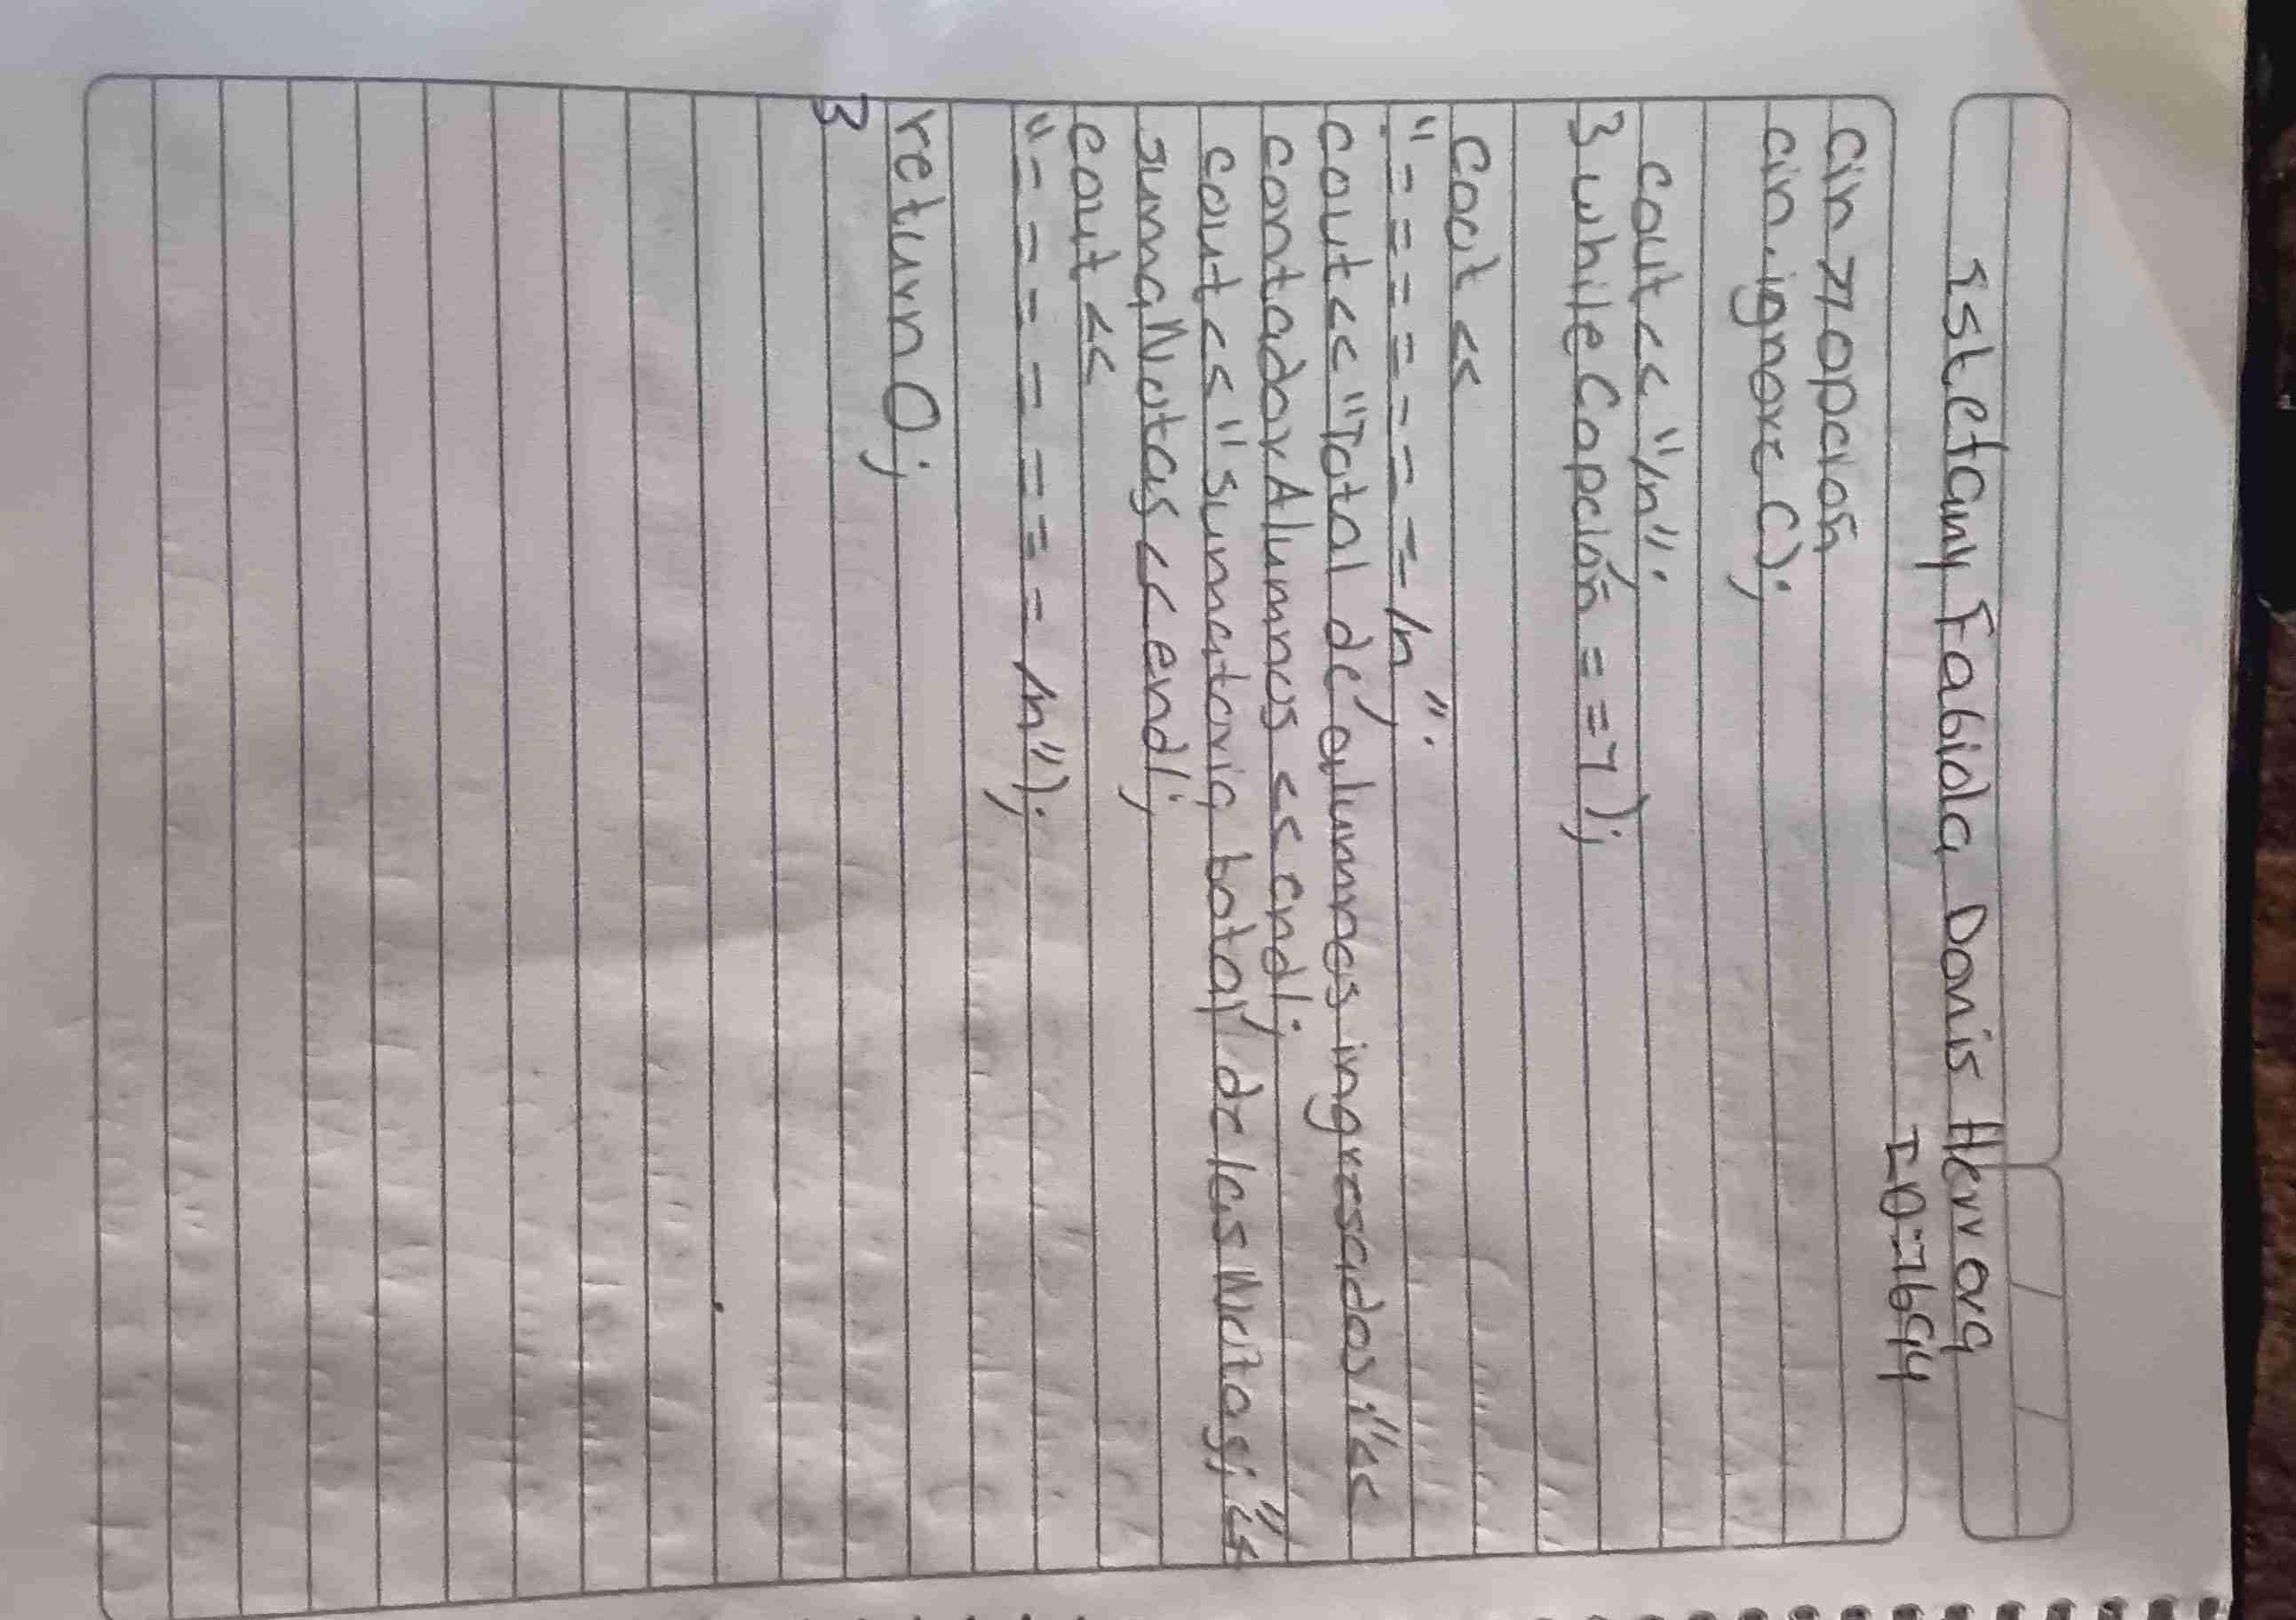 sstefany Fabiola Donis Herrara
ID=7694
cin >> opción
cin.ignore ();
cout << "/n";
} while (opción == 7);
Cout <<
"= = = = = = = = = /n";
cout << "Total de alumnos ingresados: "<<
contador Alumnos << endl;
cout << "sumatoria total de las Notas; "<<
suma Notas << endl;
cout <<
"= = = = = = = = /n");
return 0;
}